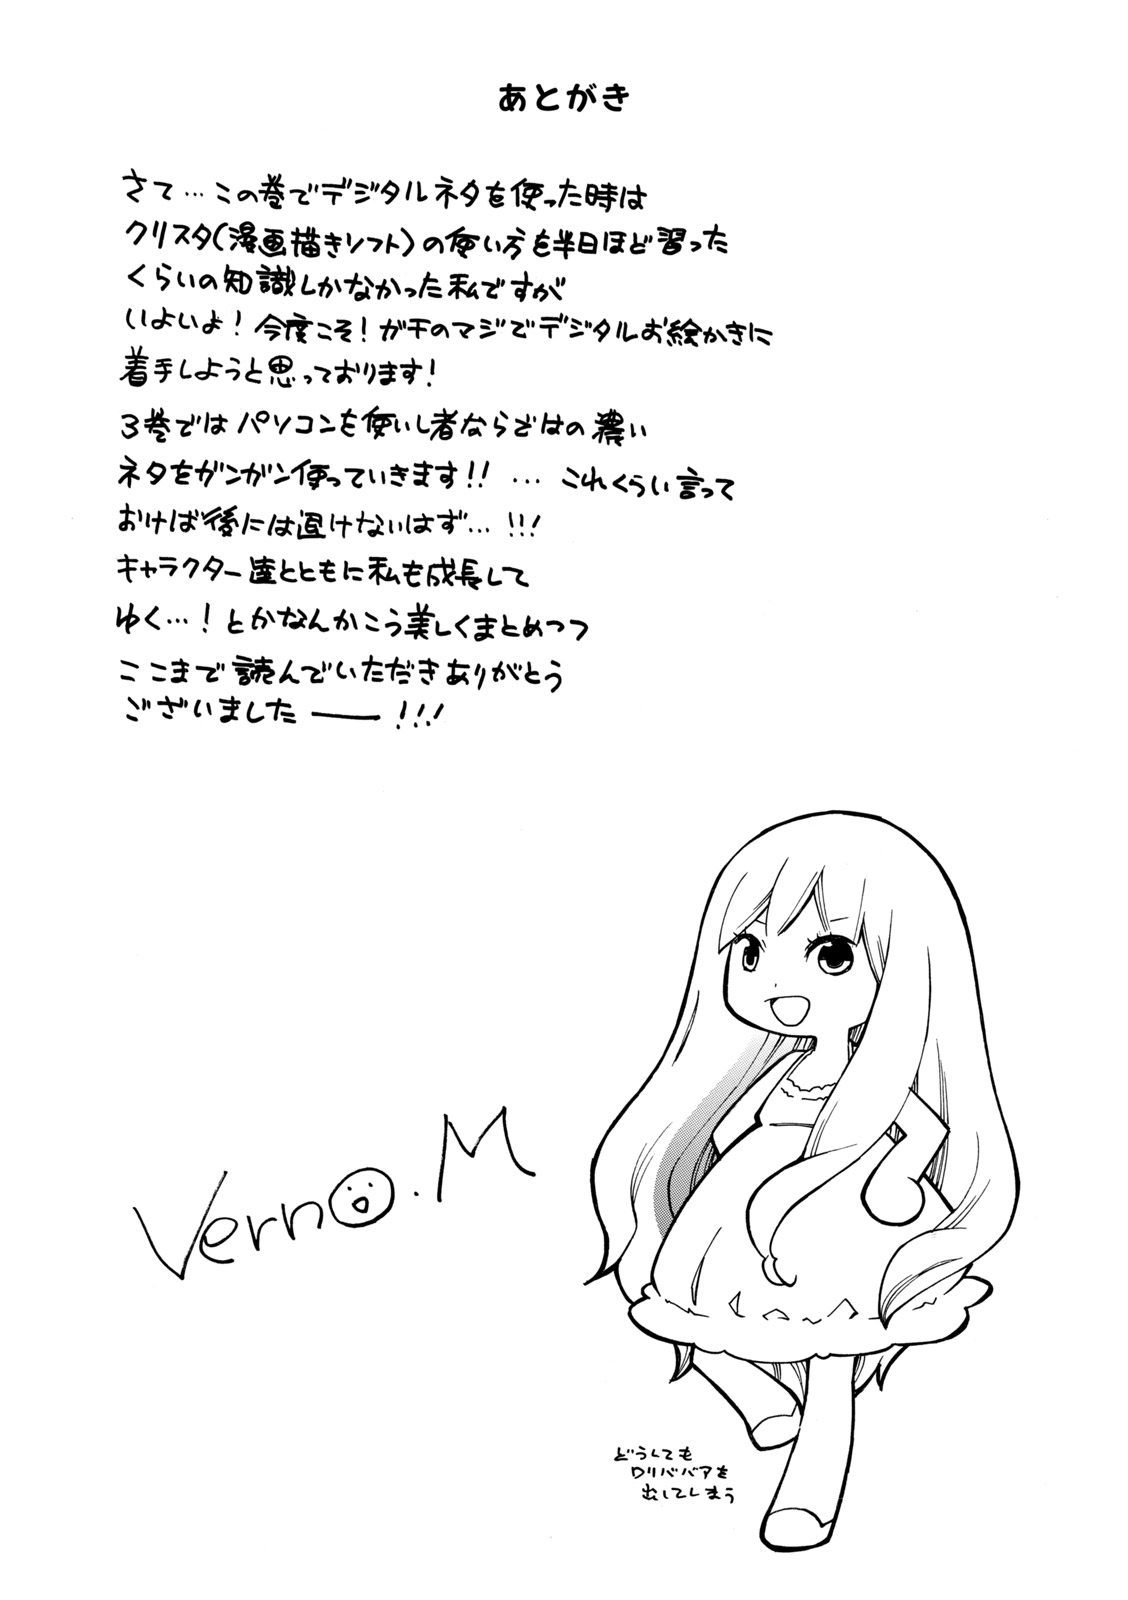 あとがき
さて…この巻でデジタルネタを使った時は
クリスタ(漫画描きソフト)の使い方を半日ほど習った
くらいの知識しかなかった私ですが
いよいよ！今度こそ！ガチのマジでデジタルお絵かきに
着手しようと思っております！
3巻ではパソコンを使いし者ならではの濃い
ネタをガンガン使っていきます!! …これくらい言って
おけば後には退けないはず…!!!
キャラクター達とともに私も成長して
ゆく…！とかなんかこう美しくまとめつつ
ここまで読んでいただきありがとう
ございました――!!!
Verno.M
どうしても
ロリババアを
出してしまう